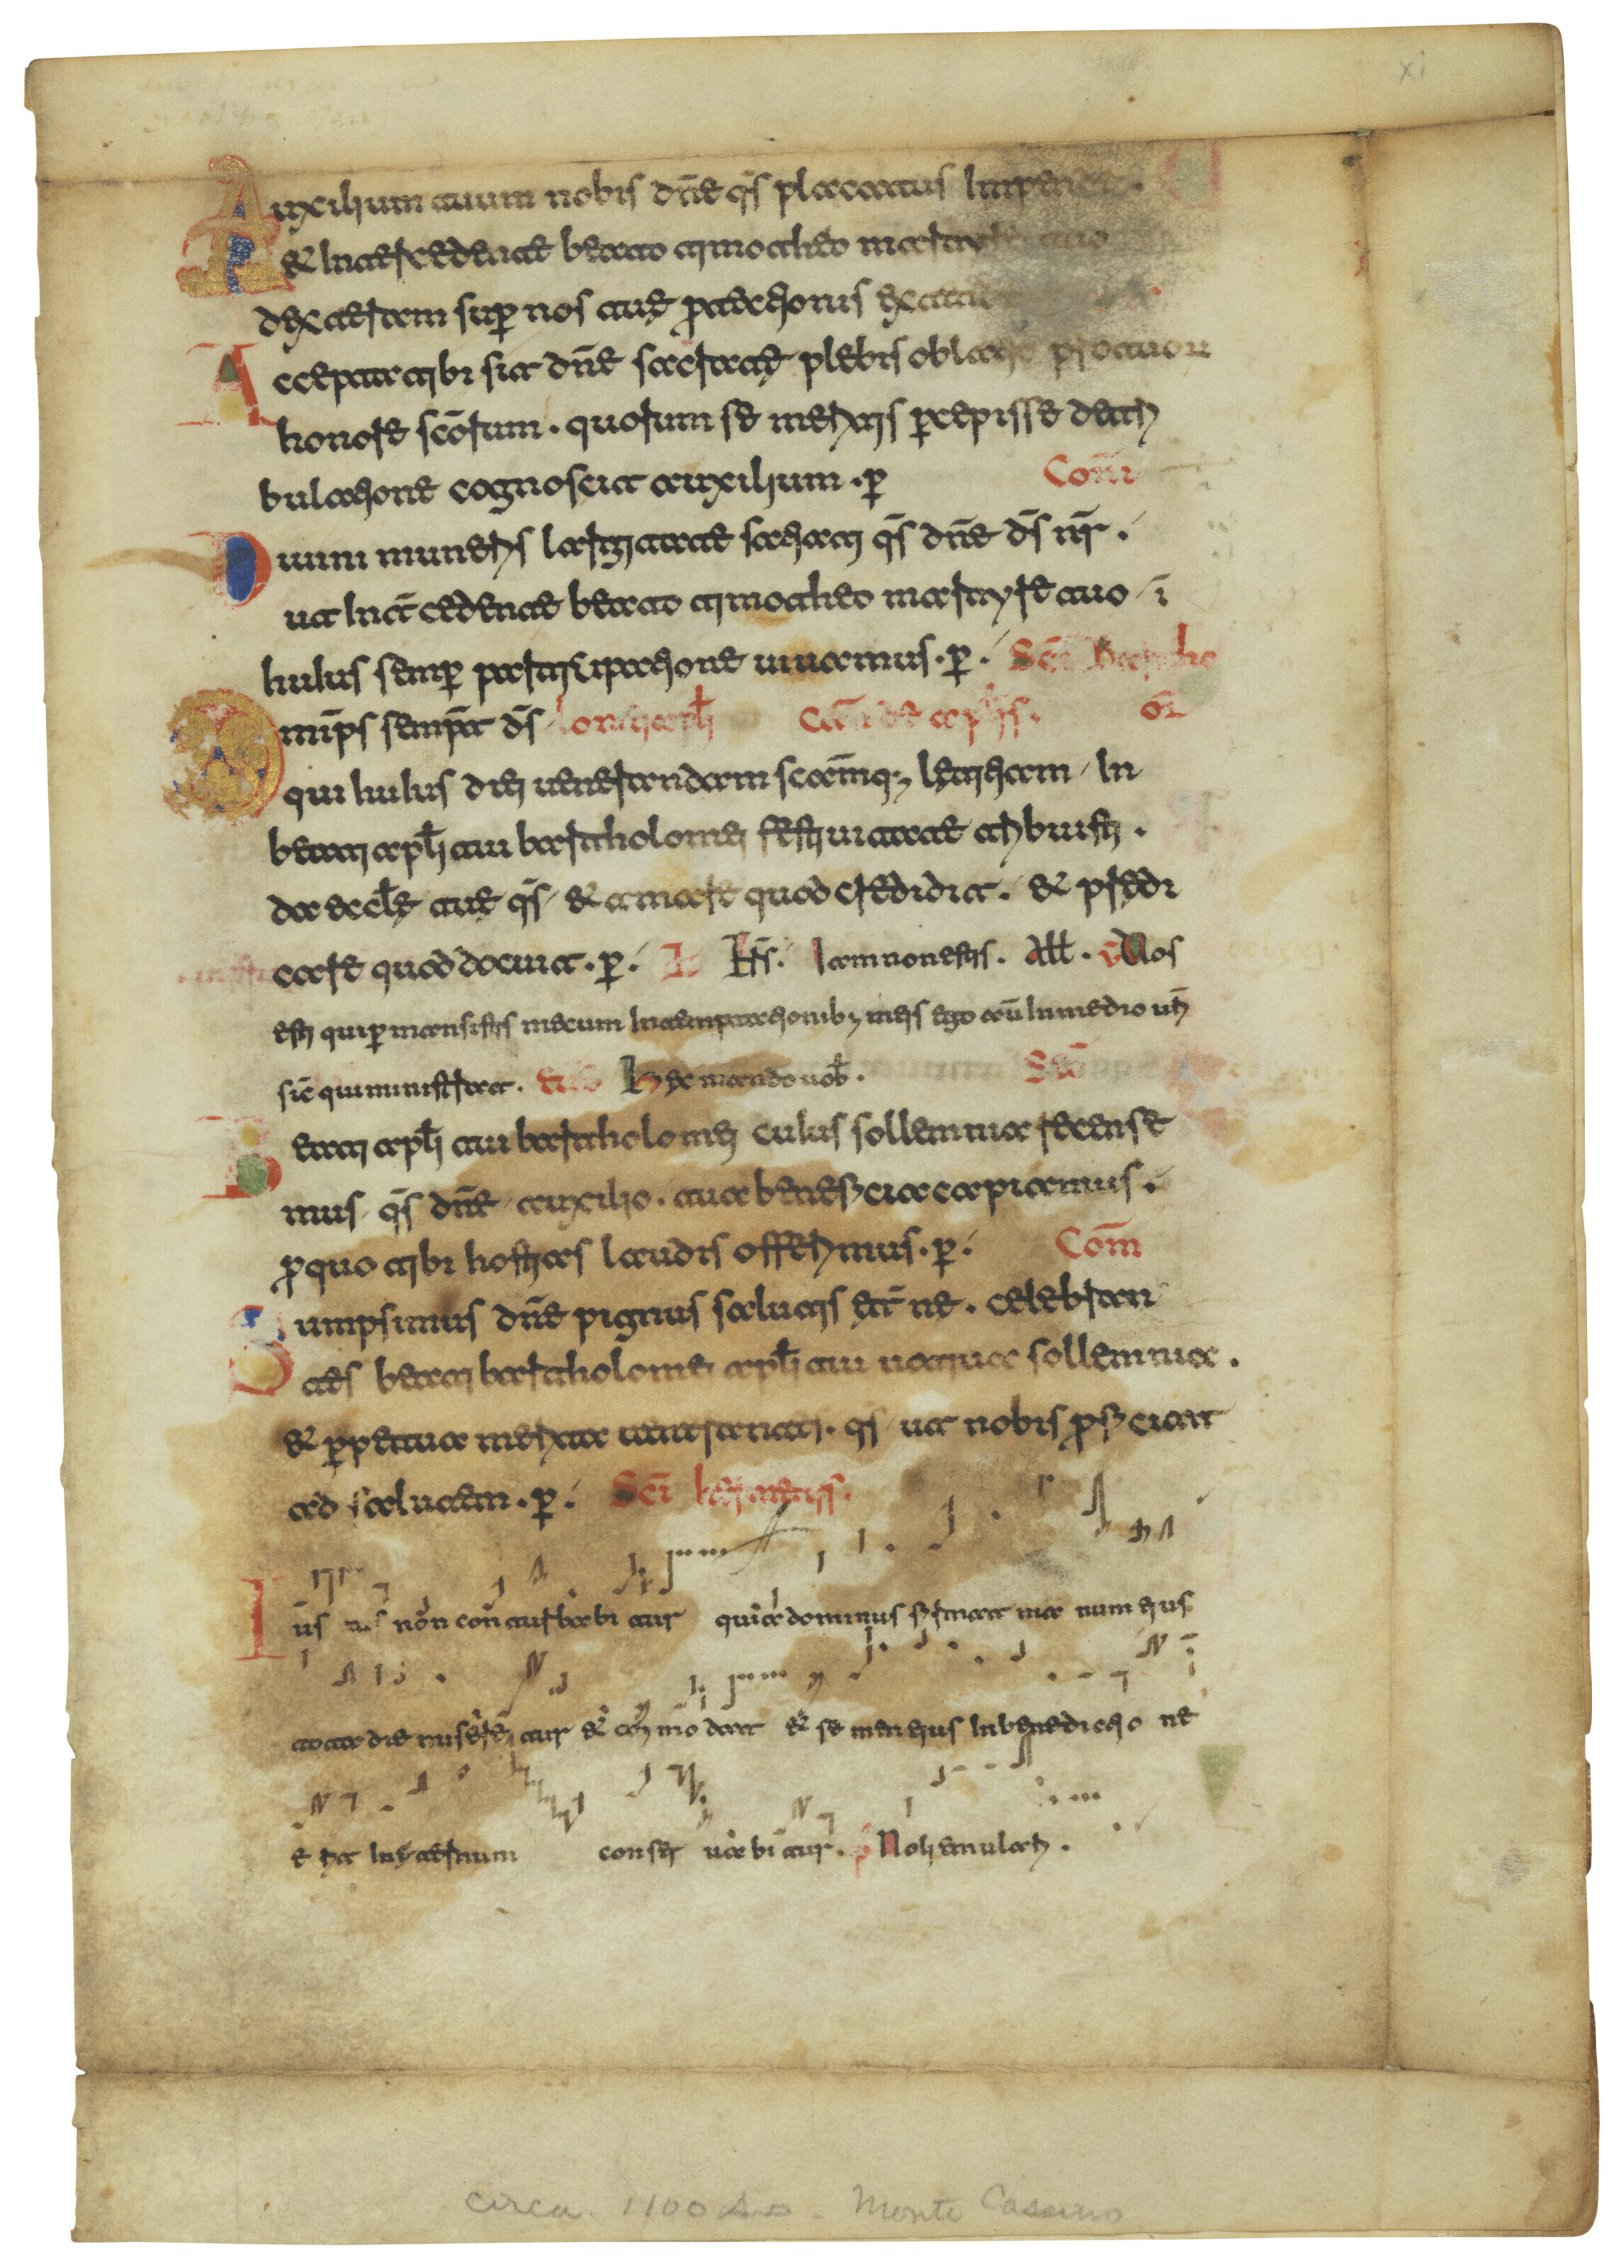 xi
Auxilium tuum nobis dñe qs placatus Impende.
& Intercedente beato timotheo martyre tuo
dexteram sup nos tuę ꝓpitiationis extende
Accepta tibi sit dñe sacratę plebis oblatio p tuorum
honore scorum. quorum se meritis pcepisse de tri
bulatione cognoscit auxilium. p̄ Com̄
Diuini muneris largitate satiati qs dñe ds nr.
ut Int̄cedente beato timotheo martyre tuo / i
huius semp̄ participatione uiuamus. p̄. Sc̄i Bartho
Omīps semp̄t ds lomei apl̄i or̄
qui huius diei uenerandam scamq; lętitiam / In
beati apl̄i tui bartholomei festiuitate tribuisti.
da eccl̄ę tuę qs / & amare quod credidit. & predi
care quod docuit. p̄. Iam non estis. All̄. Vos
estis qui pmansistis mecum In temptationib; meis ego aū In medio ur̄i
sū sic qui ministrat. Hęc mando uob̄. Sec̄
Beati apl̄i tui bartholomei cuius sollemnia recense
mus / qs dñe / auxilio. tua beneficia capiamus.
ꝓ quo tibi hostias laudis offerimus. p̄. Com̄
Sumpsimus dñe pignus salutis ęt̄nę. celebran
tes beati bartholomei apl̄i tui uotiua sollemnia.
& ppetua merita uenerantes. qs / ut nobis ꝓficiat
ad salutem. p̄. Sc̄i
Iūs non conturbabitur quia dominus firmat manum eius
tota die miseretur & commodat & semen eius In benedictione
erit In ęternum conseruabitur. p̄ Noli emulari.
circa. 1100 A.D. Monte Cassino